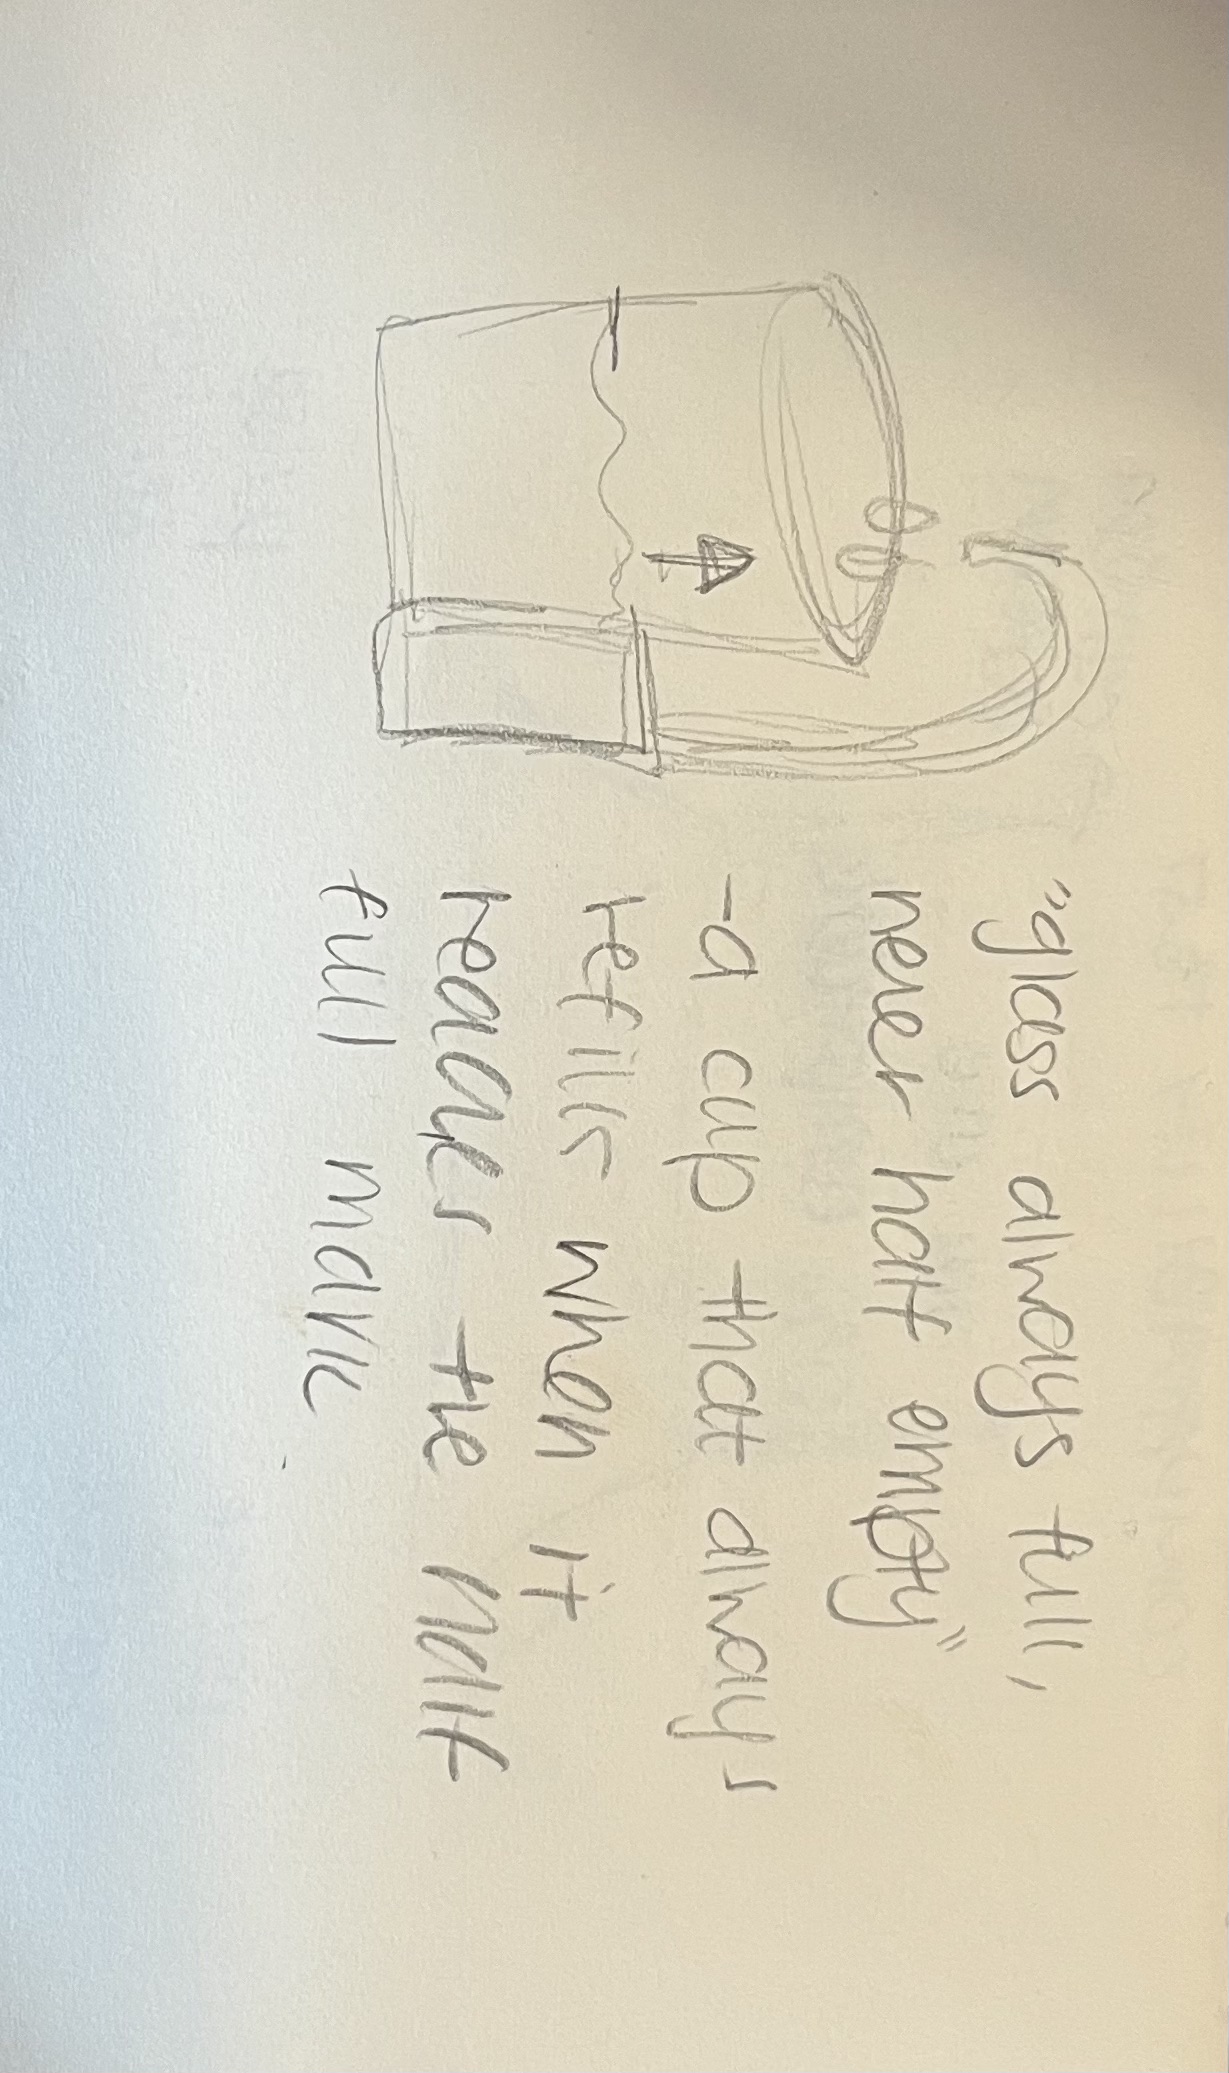 "glass always full,
never half empty"
-a cup that always
refills when it
reaches the half
full mark.